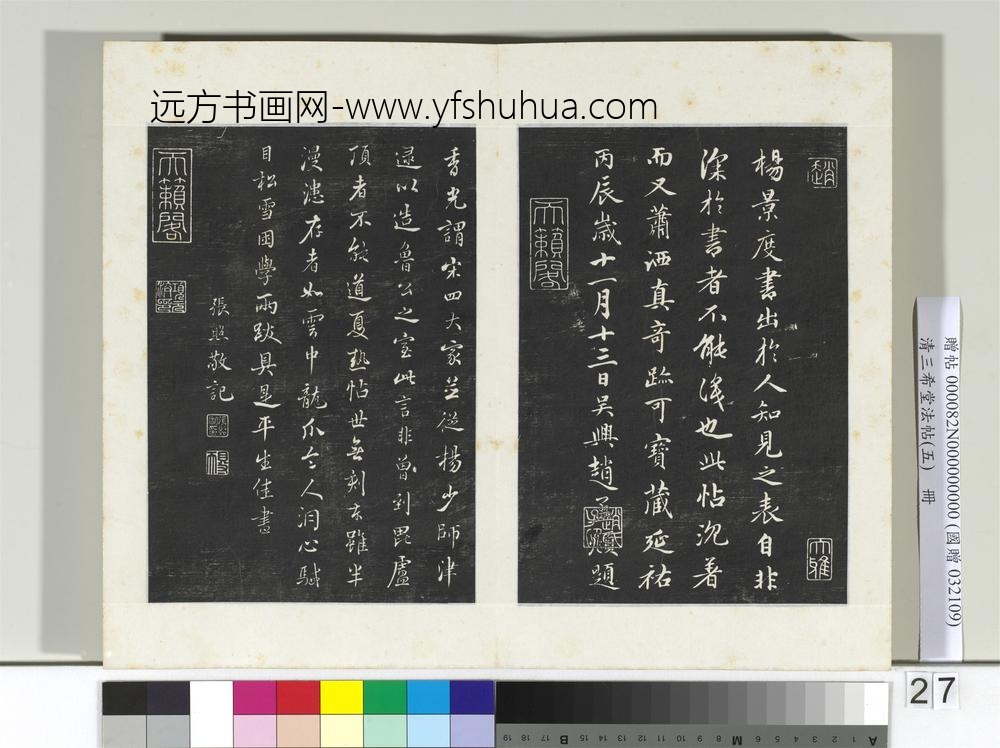 远方书画网-www.yfshuhua.com
趙
大雅
楊景度書出於人知見之表自非
深於書者不能識也此帖沉著
而又蕭洒真奇跡可寶藏延祐
丙辰歲十一月十三日吳興趙孟頫題
天籟閣
趙孟頫
香光謂宋四大家並從楊少師津
逮以造魯公之室此言非曾到毘盧
頂者不能道夏熱帖世無刻本雖半
漫漶存者如雲中龍爪令人洞心駴
目松雪困學兩跋具是平生佳書
張照敬記
天籟閣
贈帖 000082N000000000 (國贈 032109)
清三希堂法帖(五) 冊
27
A 1 2 3 4 5 6 M 8 9 10 11 12 13 14 15 B 17 18 19